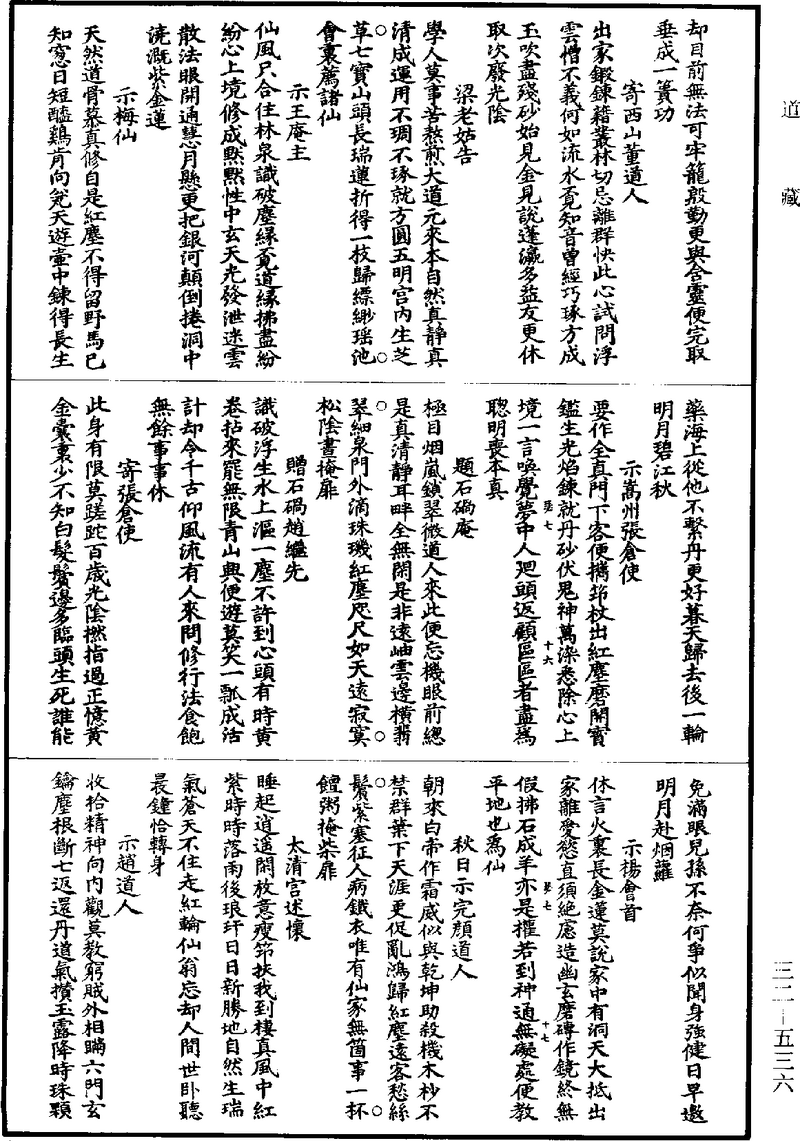 道藏
却目前無法可牢籠殷勤更與含靈便完取
垂成一簣功
寄西山董道人
出家鍛鍊籍叢林切忌離群快此心試問浮
雲憎不義何如流水覓知音曾經巧琢方成
玉吹盡殘砂始見金見說蓬瀛多益友更休
取次廢光陰
梁老姑告
學人莫事苦熬煎大道元來本自然真靜真
清成運用不琱不琢就方圓五明宮內生芝
草七寶山頭長瑞蓮折得一枝歸縹緲瑶池
會裏薦諸仙
示王庵主
仙風只合住林泉識破塵緣貪道緣拂盡紛
紛心上境修成點點性中玄天光發泄迷雲
散法眼開通慧月懸更把銀河顛倒捲洞中
澆溉紫金蓮
示梅仙
天然道骨慕真修自是紅塵不得留野馬已
知窓日短醯鷄肯向瓮天遊壷中鍊得長生
藥海上從他不繫丹更好暮天歸去後一輪
明月碧江秋
示嵩州張倉使
要作全真門下客便攜笻杖出紅塵磨開寶
鑑生光焰鍊就丹砂伏鬼神萬染悉除心上
境一言喚覺夢中人廻頭返顧區區者盡爲
聰明喪本真
題石碢庵
極目烟嵐鎖翠微道人來此便忘機眼前緫
是真清靜耳畔全無閑是非遠岫雲邊橫翡
翠細泉門外滴珠璣紅塵咫尺如天遠寂寞
松陰晝掩扉
贈石碢趙繼先
識破浮生水上漚一塵不許到心頭有時黄
卷拈來罷無限青山興便遊莫笑一瓢成活
計却令千古仰風流有人來問修行法食飽
無餘事事休
寄張倉使
此身有限莫蹉跎百歲光陰撚指過正憶黄
金囊裏少不知白髮鬢邊多臨頭生死誰能
免滿眼兒孫不奈何爭似聞身強健日早邀
明月赴烟蘿
示楊會首
休言火裏長金蓮莫說家中有洞天大抵出
家離愛慾直須絕慮造幽玄磨磚作鏡終無
假拂石成羊亦是權若到神通無礙處便教
平地也爲仙
秋日示完顏道人
朝來白帝作霜威似與乾坤助殺機木杪不
禁群葉下天涯更促亂鴻歸紅塵遠客愁絲
鬢紫塞征人病鐵衣唯有仙家無箇事一杯
饘粥掩柴扉
太清宮述懷
睡起逍遥閑放意瘦笻扶我到棲真風中紅
紫時時落雨後琅玕日日新勝地自然生瑞
氣蒼天不住走紅輪仙翁忘却人間世卧聽
晨鐘恰轉身
示趙道人
收拾精神向內觀莫教窮賊外相瞞六門玄
鑰塵根斷七返還丹道氣攢玉露降時珠顆
三二—五三六